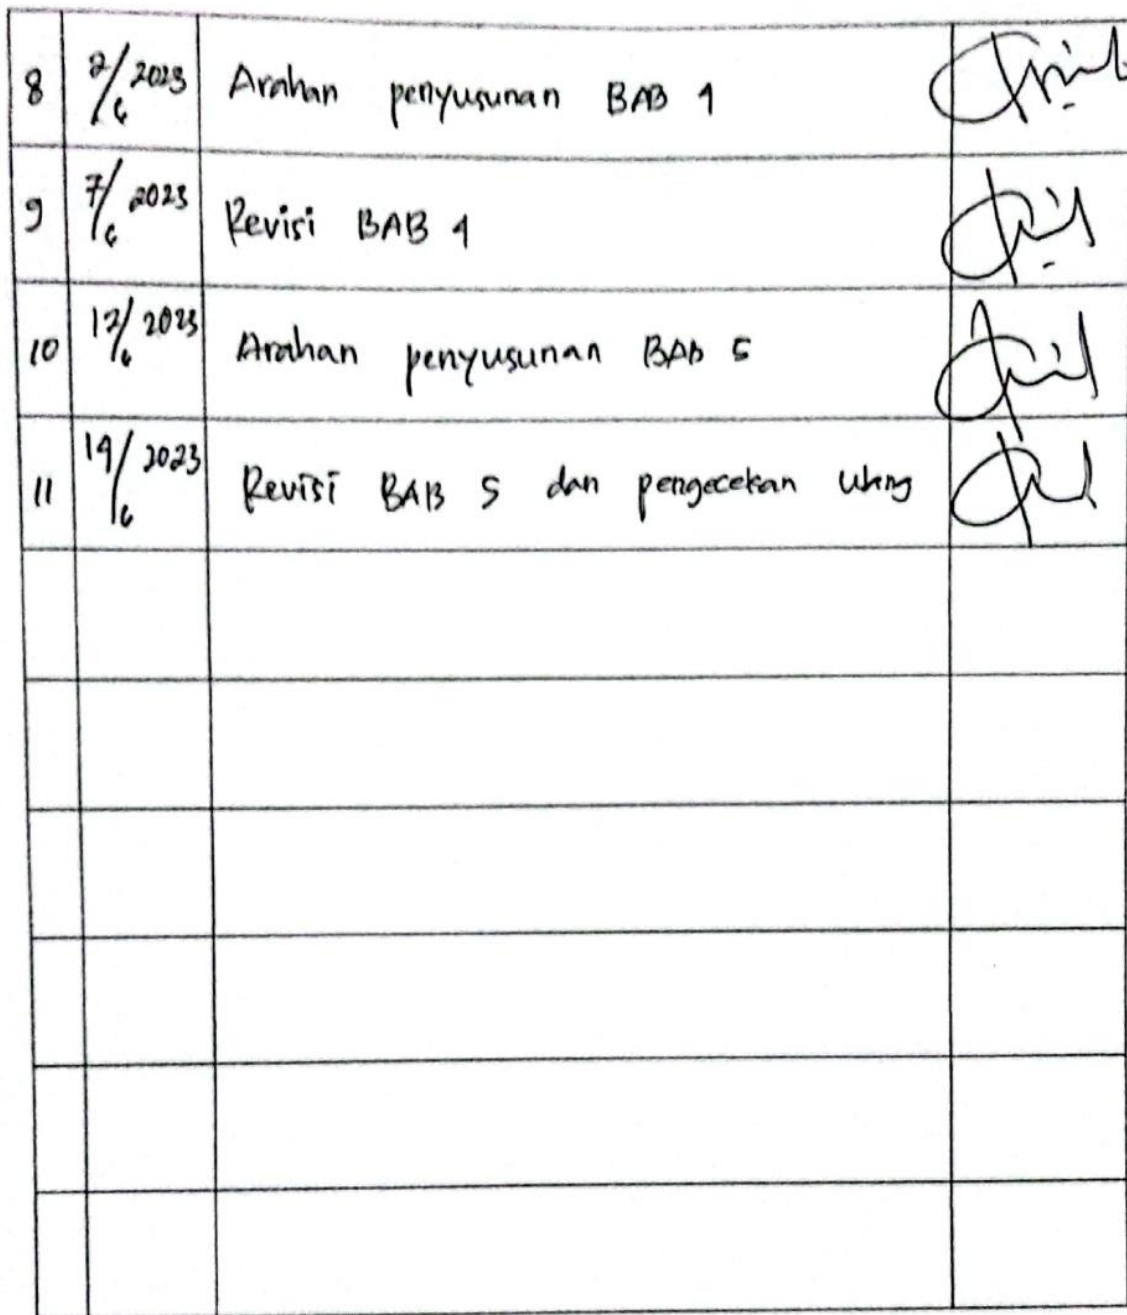 8 2/6 2023 Arahan penyusunan BAB 4
9 7/6 2023 Revisi BAB 4
10 12/6 2023 Arahan penyusunan BAB 5
11 19/6 2023 Revisi BAB 5 dan pengecekan ulang